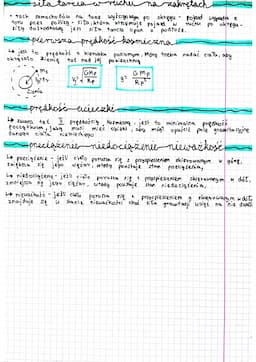 siła tarcia w ruchu na zakrętach
• ruch samochodu na torze wyścigowym po okręgu - pojazd wypada z
toru przez poślizg - siła, która utrzymuje pojazd w ruchu po okręgu -
siłą dośrodkową jest siła tarcia opon o podłoże.
pierwsza prędkość kosmiczna
↳ jest to prędkość o kierunku poziomym, którą trzeba nadać ciału, aby
okrążało Ziemię tuż nad jej powierzchnią
Ziemia
prędkość ucieczki
↳ zwana też II prędkością kosmiczną - jest to minimalna prędkość
początkowa, jaką musi mieć obiekt, aby mógł opuścić pole grawitacyjne
danego ciała niebieskiego
przeciążenie - niedociążenie - nieważkość
↳ przeciążenie - jeśli ciało porusza się z przyspieszeniem skierowanym w górę,
zwiększa się jego ciężar, wtedy powstaje stan przeciążenia,
↳ niedociążenie - jeśli ciało porusza się z przyspieszeniem skierowanym w dół,
zmniejsza się jego ciężar, wtedy powstaje stan niedociążenia,
↳ nieważkość - jeśli ciało porusza się z przyspieszeniem g skierowanym w dół
znajduje się w stanie nieważkości